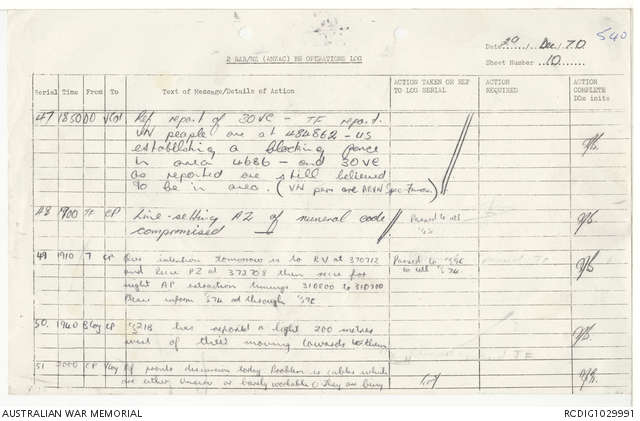 540
Date 30 / Dec / 70
2 RAR/NZ (ANZAC) BN OPERATIONS LOG
Sheet Number 10
Serial Time From To Text of Message/Details of Action ACTION TAKEN OR REF TO LOG SERIAL ACTION REQUIRED ACTION COMPLETE DOs inits
47 1850 DO Ref report of 30 VC - TF report.
VN people are at 484862 - US
establishing a blocking force
in area 4686 - and 30 VC
as reported are still believed
to be in area. (VN pers are ARVN Spec Forces)
48 1900 TF CP Line-setting AZ of numeral code Passed to all
compromised
49 1910 7 CP Our intention tomorrow is to RV at 370712 Passed to
and Recce PZ at 373708 then recce for to
night AP extraction timings 310800 to 310900
Please inform and through
50. 1940 CP has reported a light 200 metres
west of their moving towards them
51 2000 CP Ref discussion today. Problem is cables which
are either or barely workable (They are busy
AUSTRALIAN WAR MEMORIAL
RCDIG1029991